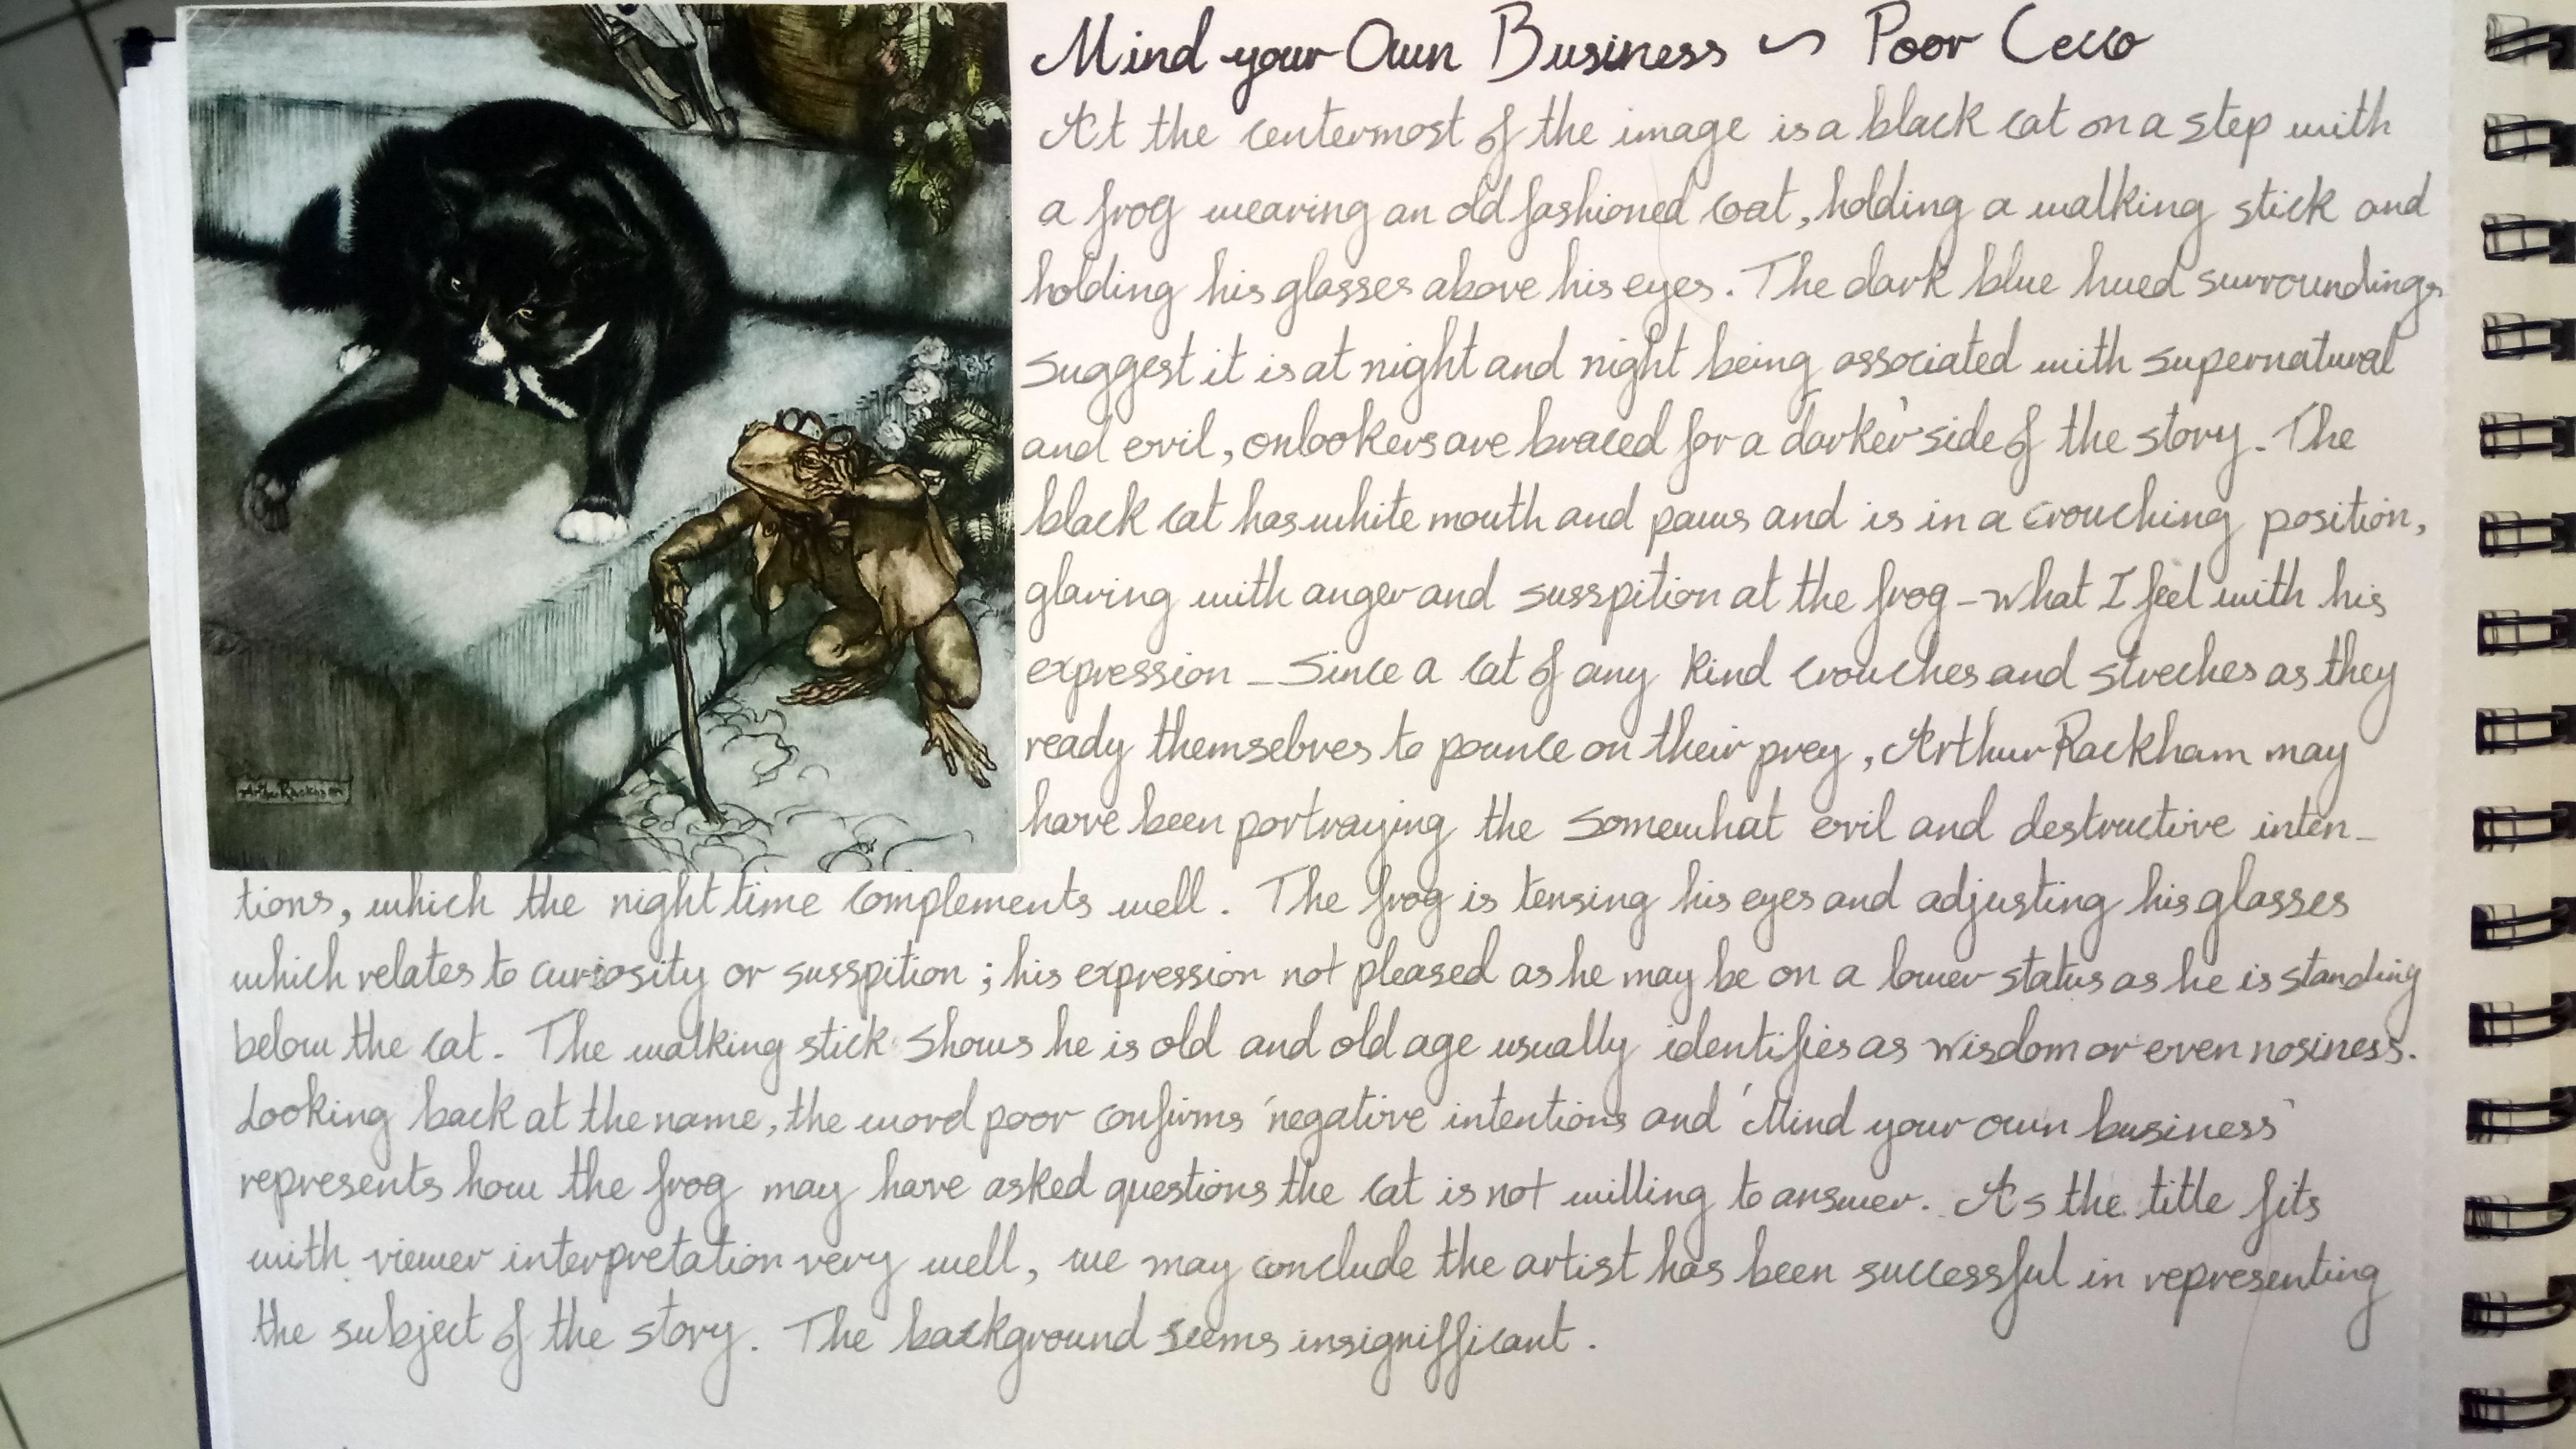 Mind your Own Business ~ Poor Cecco
At the centermost of the image is a black cat on a step with
a frog wearing an old fashioned coat, holding a walking stick and
holding his glasses above his eyes. The dark blue hued surroundings
suggest it is at night and night being associated with supernatural
and evil, onlookers are braced for a 'darker' side of the story. The
black cat has white mouth and paws and is in a crouching position,
glaring with anger and susspition at the frog - what I feel with his
expression - Since a cat of any kind crouches and streches as they
ready themselves to pounce on their prey, Arthur Rackham may
have been portraying the somewhat evil and destructive inten-
Arthur Rackham
tions, which the night time complements well. The frog is tensing his eyes and adjusting his glasses
which relates to curiosity or susspition; his expression not pleased as he may be on a lower status as he is standing
below the cat. The walking stick shows he is old and old age usually identifies as wisdom or even nosiness.
Looking back at the name, the word poor confirms 'negative intentions and 'Mind your own business'
represents how the frog may have asked questions the cat is not willing to answer. As the title fits
with viewer interpretation very well, we may conclude the artist has been successful in representing
the subject of the story. The background seems insignifficant.